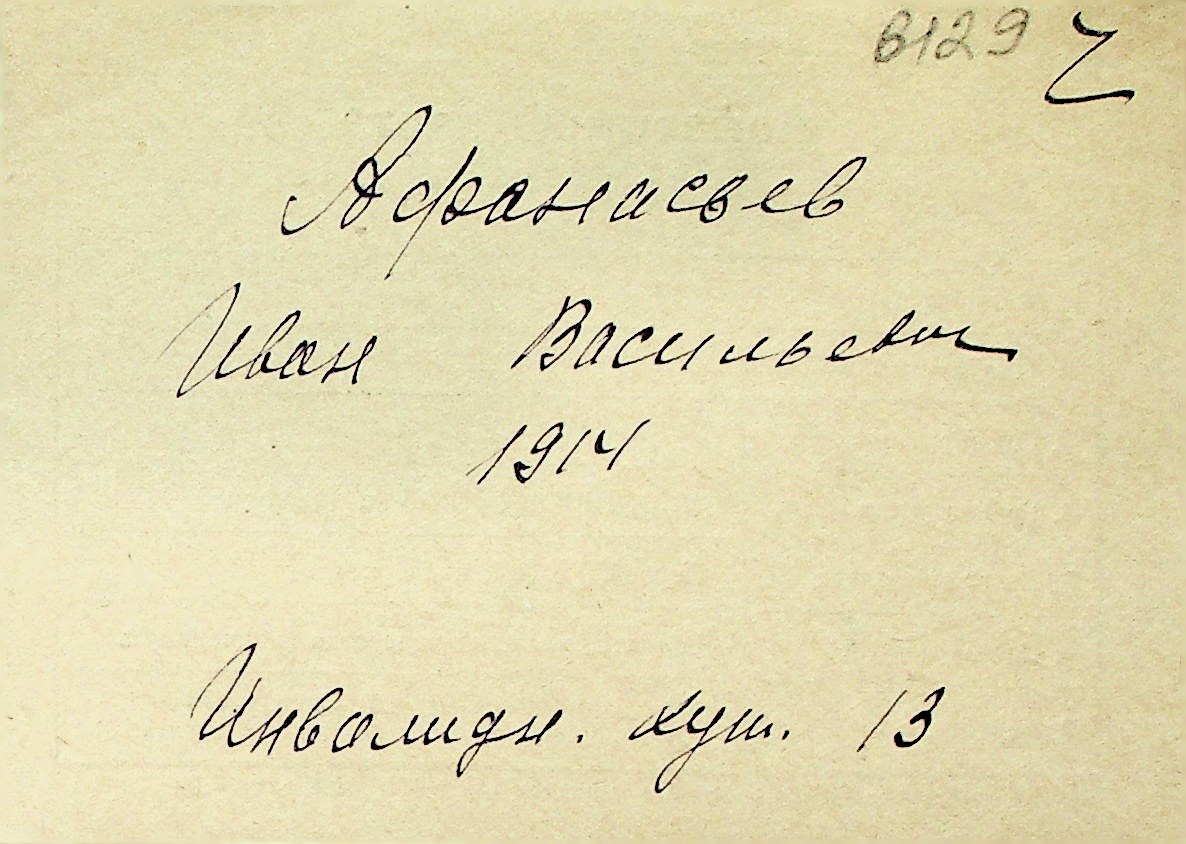 6129
Афанасьев
Иван Васильевич
1914
Инвалидн. 13